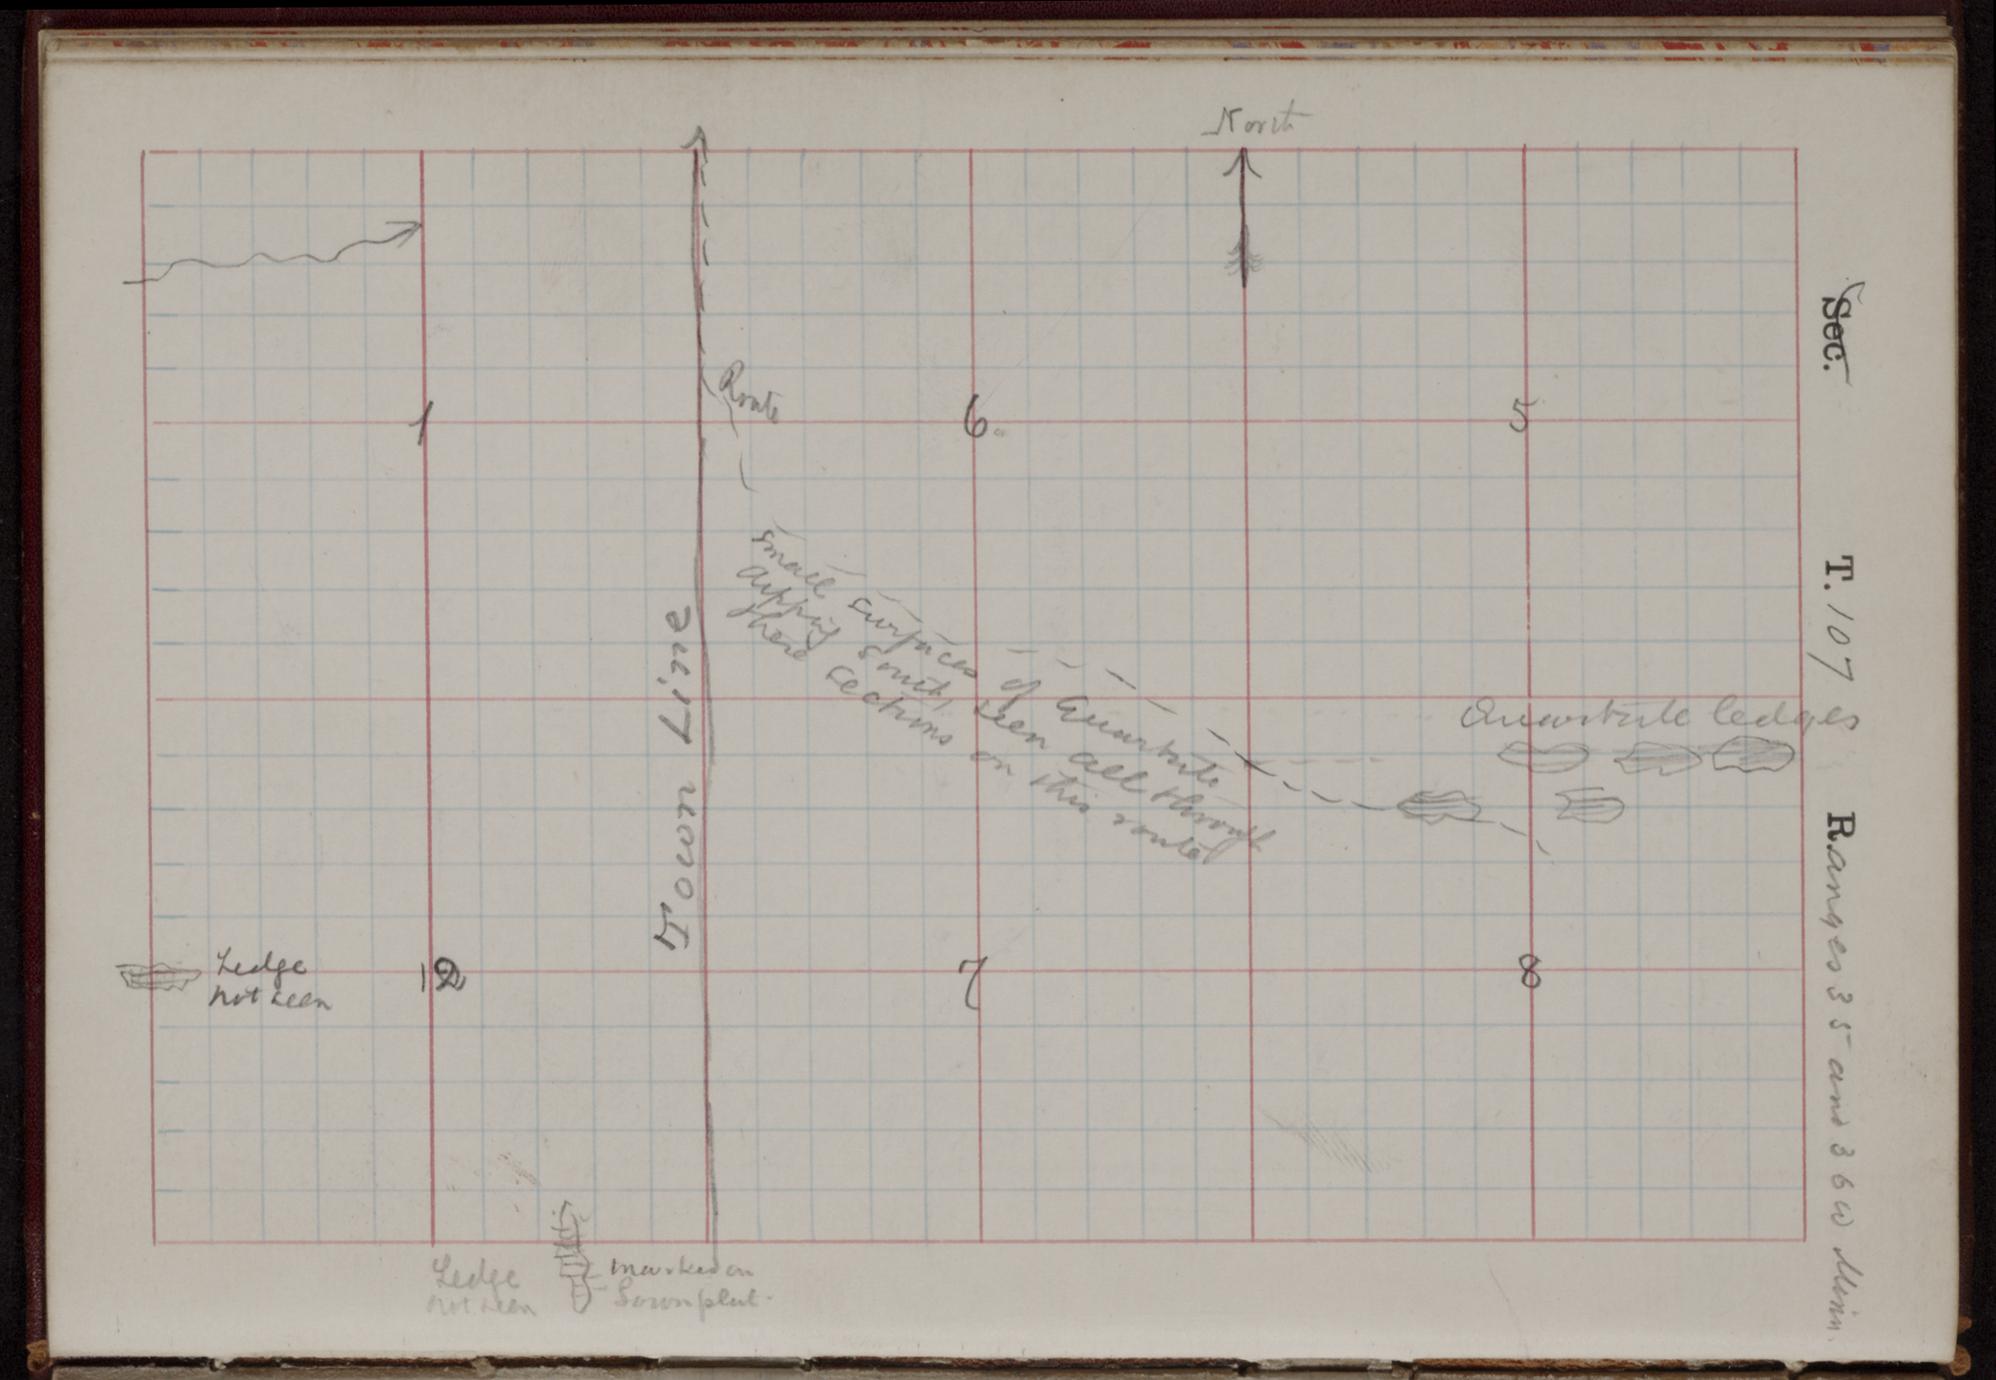 North
Route
1
6.
5
small surfaces of Quartzite
dipping south, seen all through
these sections on this route
Town Line
Quartzite ledges
Ledge
not seen
12
7
8
Ledge
not seen
marked on
Town plat.
Sec. T. 107 Ranges 35 and 36 W Minn.